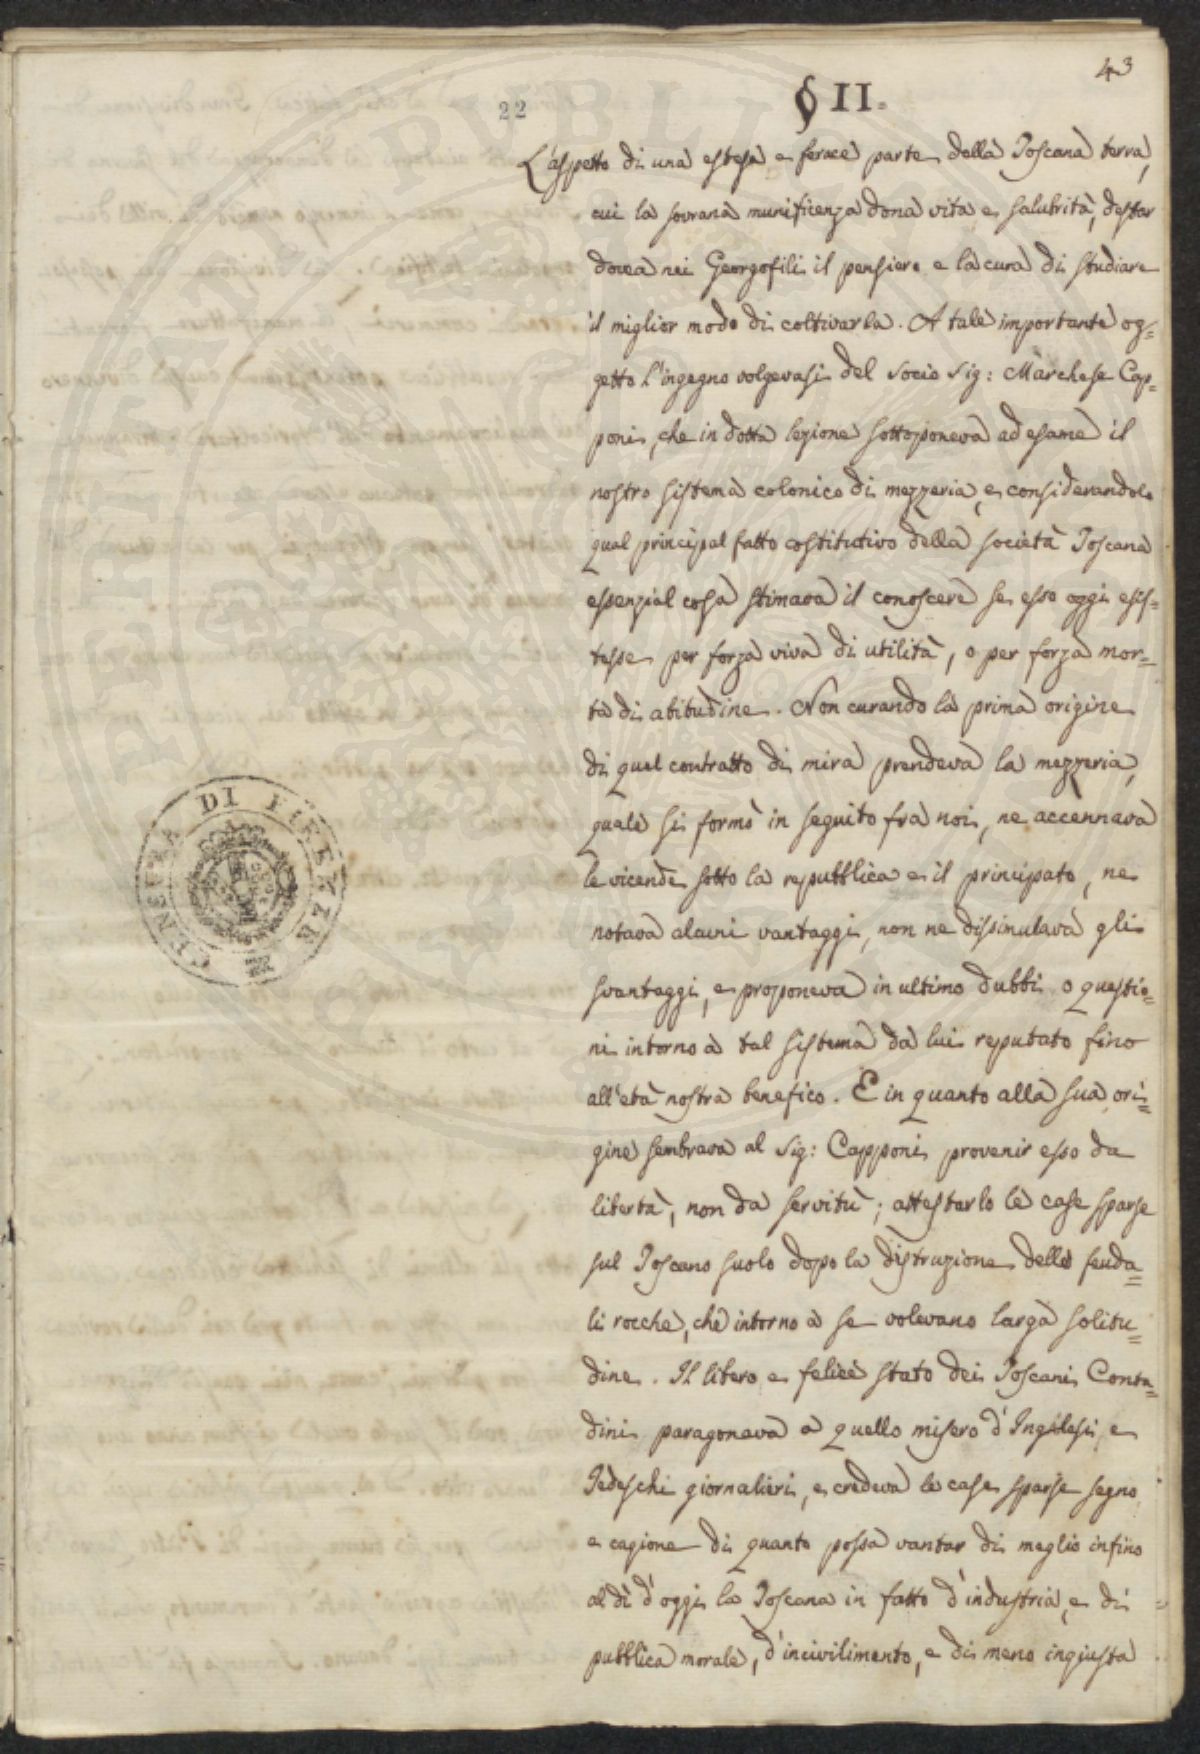 43
22
§ II.
L'aspetto di una estesa e ferace parte della Toscana terra,
cui la sovrana munificenza dona vita e salubrità, destar
dovea nei Georgofili il pensiero e la cura di studiare
il miglior modo di coltivarla. A tale importante og=
getto l'ingegno volgevasi del socio Sig: Marchese Cap=
poni, che in dotta lezione sottoponeva ad esame il
nostro sistema colonico di mezzeria, e considerandolo
qual principal fatto costitutivo della società Toscana
essenzial cosa stimava il conoscere se esso oggi esis=
tesse per forza viva di utilità, o per forza mor=
ta di abitudine. Non curando la prima origine
di quel contratto di mira prendeva la mezzeria,
quale si formò in seguito fra noi, ne accennava
le vicende sotto la repubblica e il principato, ne
notava alcuni vantaggi, non ne dissimulava gli
svantaggi, e proponeva in ultimo dubbi o questio=
ni intorno a tal sistema da lui reputato fino
all'età nostra benefico. E in quanto alla sua ori=
gine sembrava al Sig: Capponi provenir esso da
libertà, non da servitù; attestarlo le case sparse
sul Toscano suolo dopo la distruzione delle feuda=
li rocche, che intorno a se volevano larga solitu=
dine. Il libero e felice stato dei Toscani Conta=
dini paragonava a quello misero d'Inglesi e
Tedeschi giornalieri, e credeva le case sparse segno
e cagione di quanto possa vantar di meglio infino
al dì d'oggi la Toscana in fatto d'industria, e di
pubblica morale, d'incivilimento, e di meno ingiusta
CENSURA DI FIRENZE